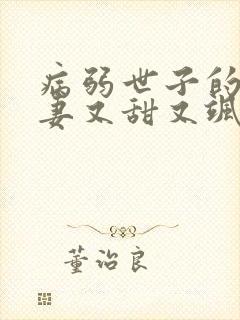 病弱世子的
妻又甜又飒
董治良